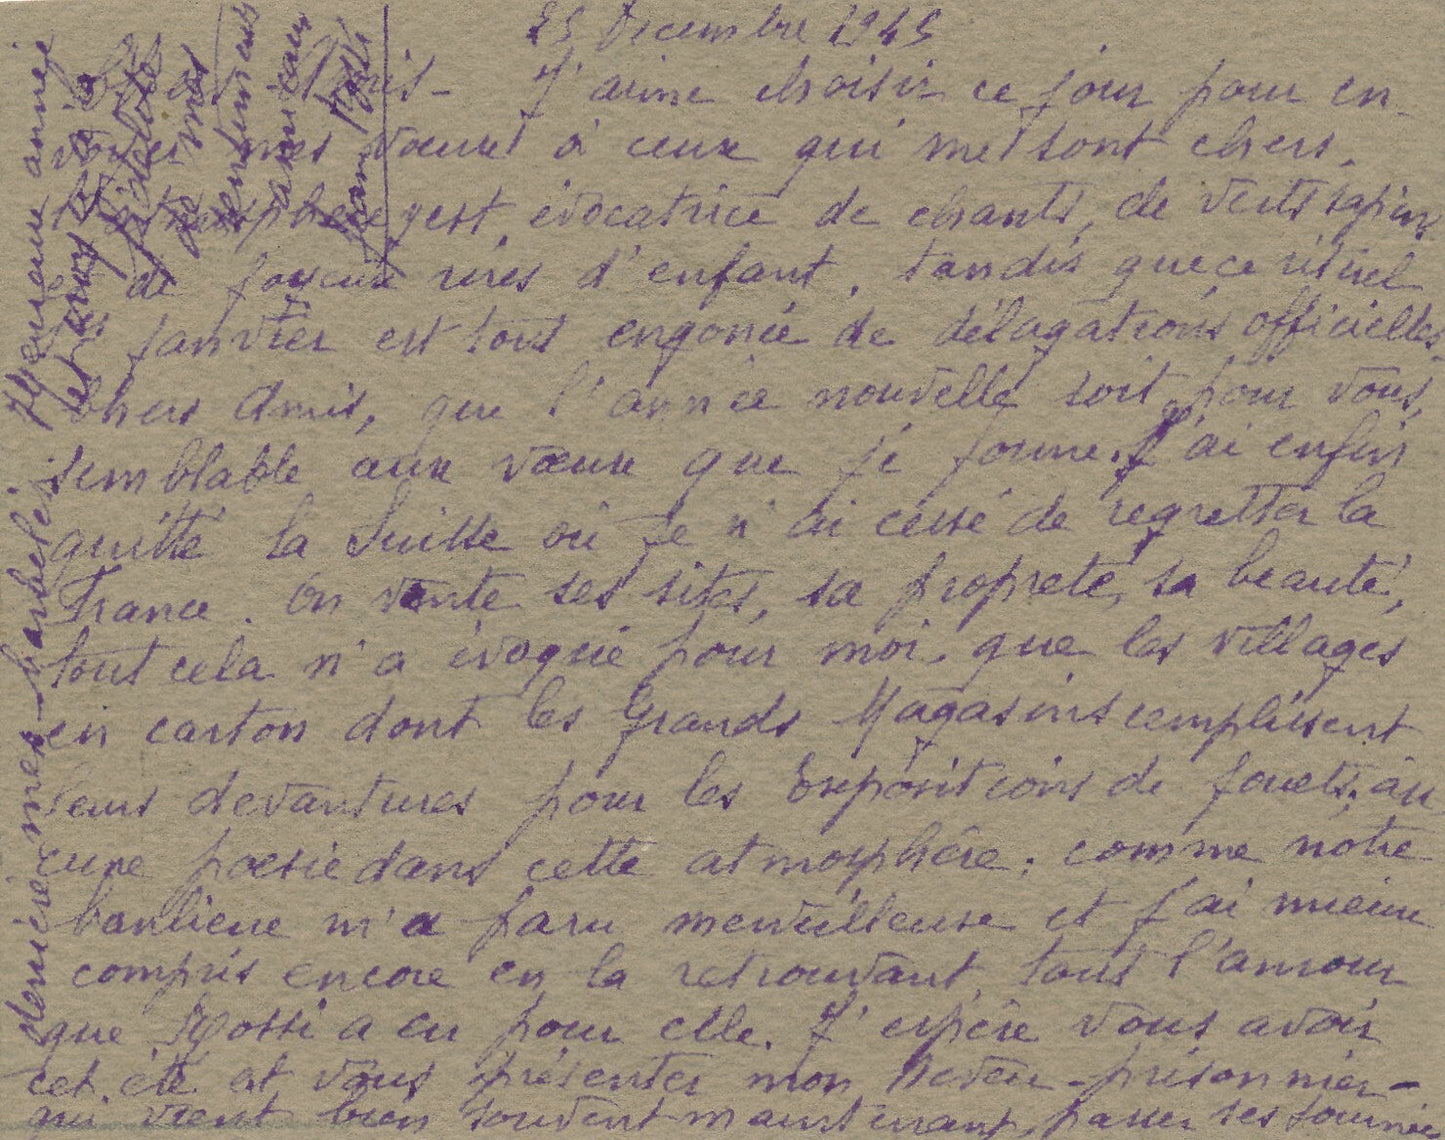 25 Decembre 1945
Chers Amis - J'aime choisir ce jour pour en-
voyer mes vœux à ceux qui me sont chers.
L'atmosphère y est évocatrice de chants, de verts sapins
et de joyeux rires d'enfant, tandis que ce rituel
1er janvier est tout engoncé de délagations officielles.
Chers Amis, que l'année nouvelle soit pour vous,
semblable aux vœux que je forme. J'ai enfin
quitté la Suisse où je n'ai cessé de regretter la
France. On vante ses sites, sa propreté, sa beauté,
tout cela n'a évoqué pour moi, que les villages
en carton dont les Grands Magasins remplissent
leurs devantures pour les Expositions de jouets, au
cune poésie dans cette atmosphère; comme notre
banlieue m'a paru merveilleuse et j'ai mieux
compris encore en la retrouvant, tout l'amour
que a eu pour elle. J'espère vous avoir
cet été et vous présenter mon neveu - prisonnier -
qui vient bien souvent maintenant, passer ses journées
dernière mes
Heureuse année
et à vous
fidélité
de mes
sentiments
amicaux